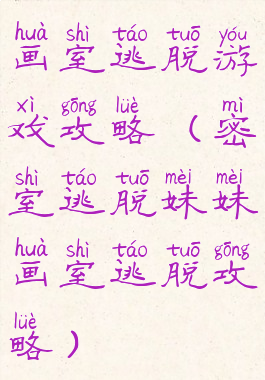 huà shì táo tuō yóu
画室逃脱游
xì gōng lüè mì
戏攻略（密
shì táo tuō mèi mèi
室逃脱妹妹
huà shì táo tuō gōng
画室逃脱攻
lüè
略）